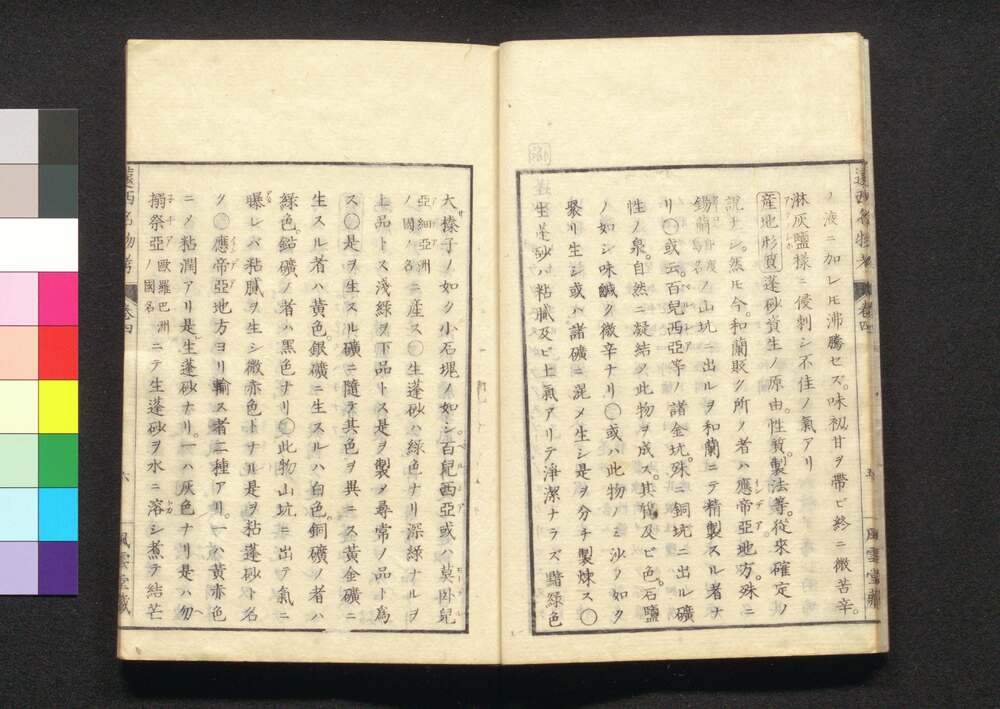 遠西名物考 卷四
ノ液ニ加レㇳモ沸騰セズ。味初甘ヲ帶ビ終ニ微苦辛。
淋灰鹽樣ニ侵刺シ不佳ノ氣アリ
産地形質 蓬砂資生ノ原由。性質製法等。從來確定ノ
說ナシ。然ㇳモ今。和蘭販ク所ノ者ハ應帝亞地方。殊ニ
錫蘭島名ノ山坑ニ出ルヲ和蘭ニテ精製スル者ナ
リ〇或云。百兒西亞等ノ諸金坑。殊ニ銅坑ニ出ル礦
性ノ泉。自然ニ凝結メ此物ヲ成ス。其狀及ビ色。石鹽
ノ如シ味鹹ク微辛ナリ〇或ハ此物ミ沙ノ如ク
聚リ生シ或ハ諸礦ニ混メ生シ是ヲ分チ製煉ス〇
生蓬砂ハ粘膩及ビ土氣アリテ淨潔ナラズ黯綠色
風雲堂藏
大サ榛子ノ如ク小石塊ノ如シ百兒西亞或ハ莫臥兒
亞細亞洲ノ國ノ名ニ産ス〇生蓬砂ハ綠色ナリ深綠ナルヲ
上品トス淺綠ヲ下品トス是ヲ製メ尋常ノ品ト爲
ス〇是ヲ生スル礦ニ隨テ其色ヲ異ニス黃金礦ニ
生スル者ハ黃色。銀礦ニ生スルハ白色。銅礦ノ者ハ
綠色。鉛礦ノ者ハ黑色ナリ〇此物山坑ニ出テ氣ニ
曝レバ粘膩ヲ生シ微赤色トナル是ヲ粘蓬砂ト名
ク〇應帝亞地方ヨリ輸ス者二種アリ。一ハ黃赤色
ニメ粘潤アリ是生蓬砂ナリ。一ハ灰色ナリ是ハ勿
搦祭亞歐羅巴洲ノ國名ニテ生蓬砂ヲ水ニ溶シ煮テ結芒
遠西名物考 卷四 六 風雲堂藏